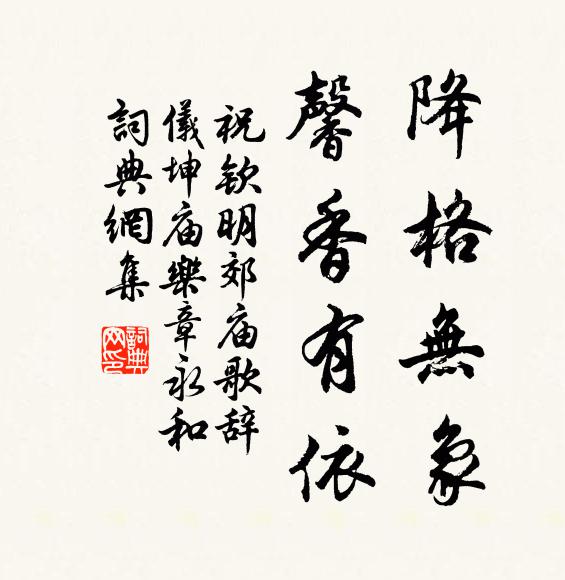 降格無象
馨香有依
祝欽明郊庙歌辞
儀坤庙樂章永和
詞典網集
詞典
网印